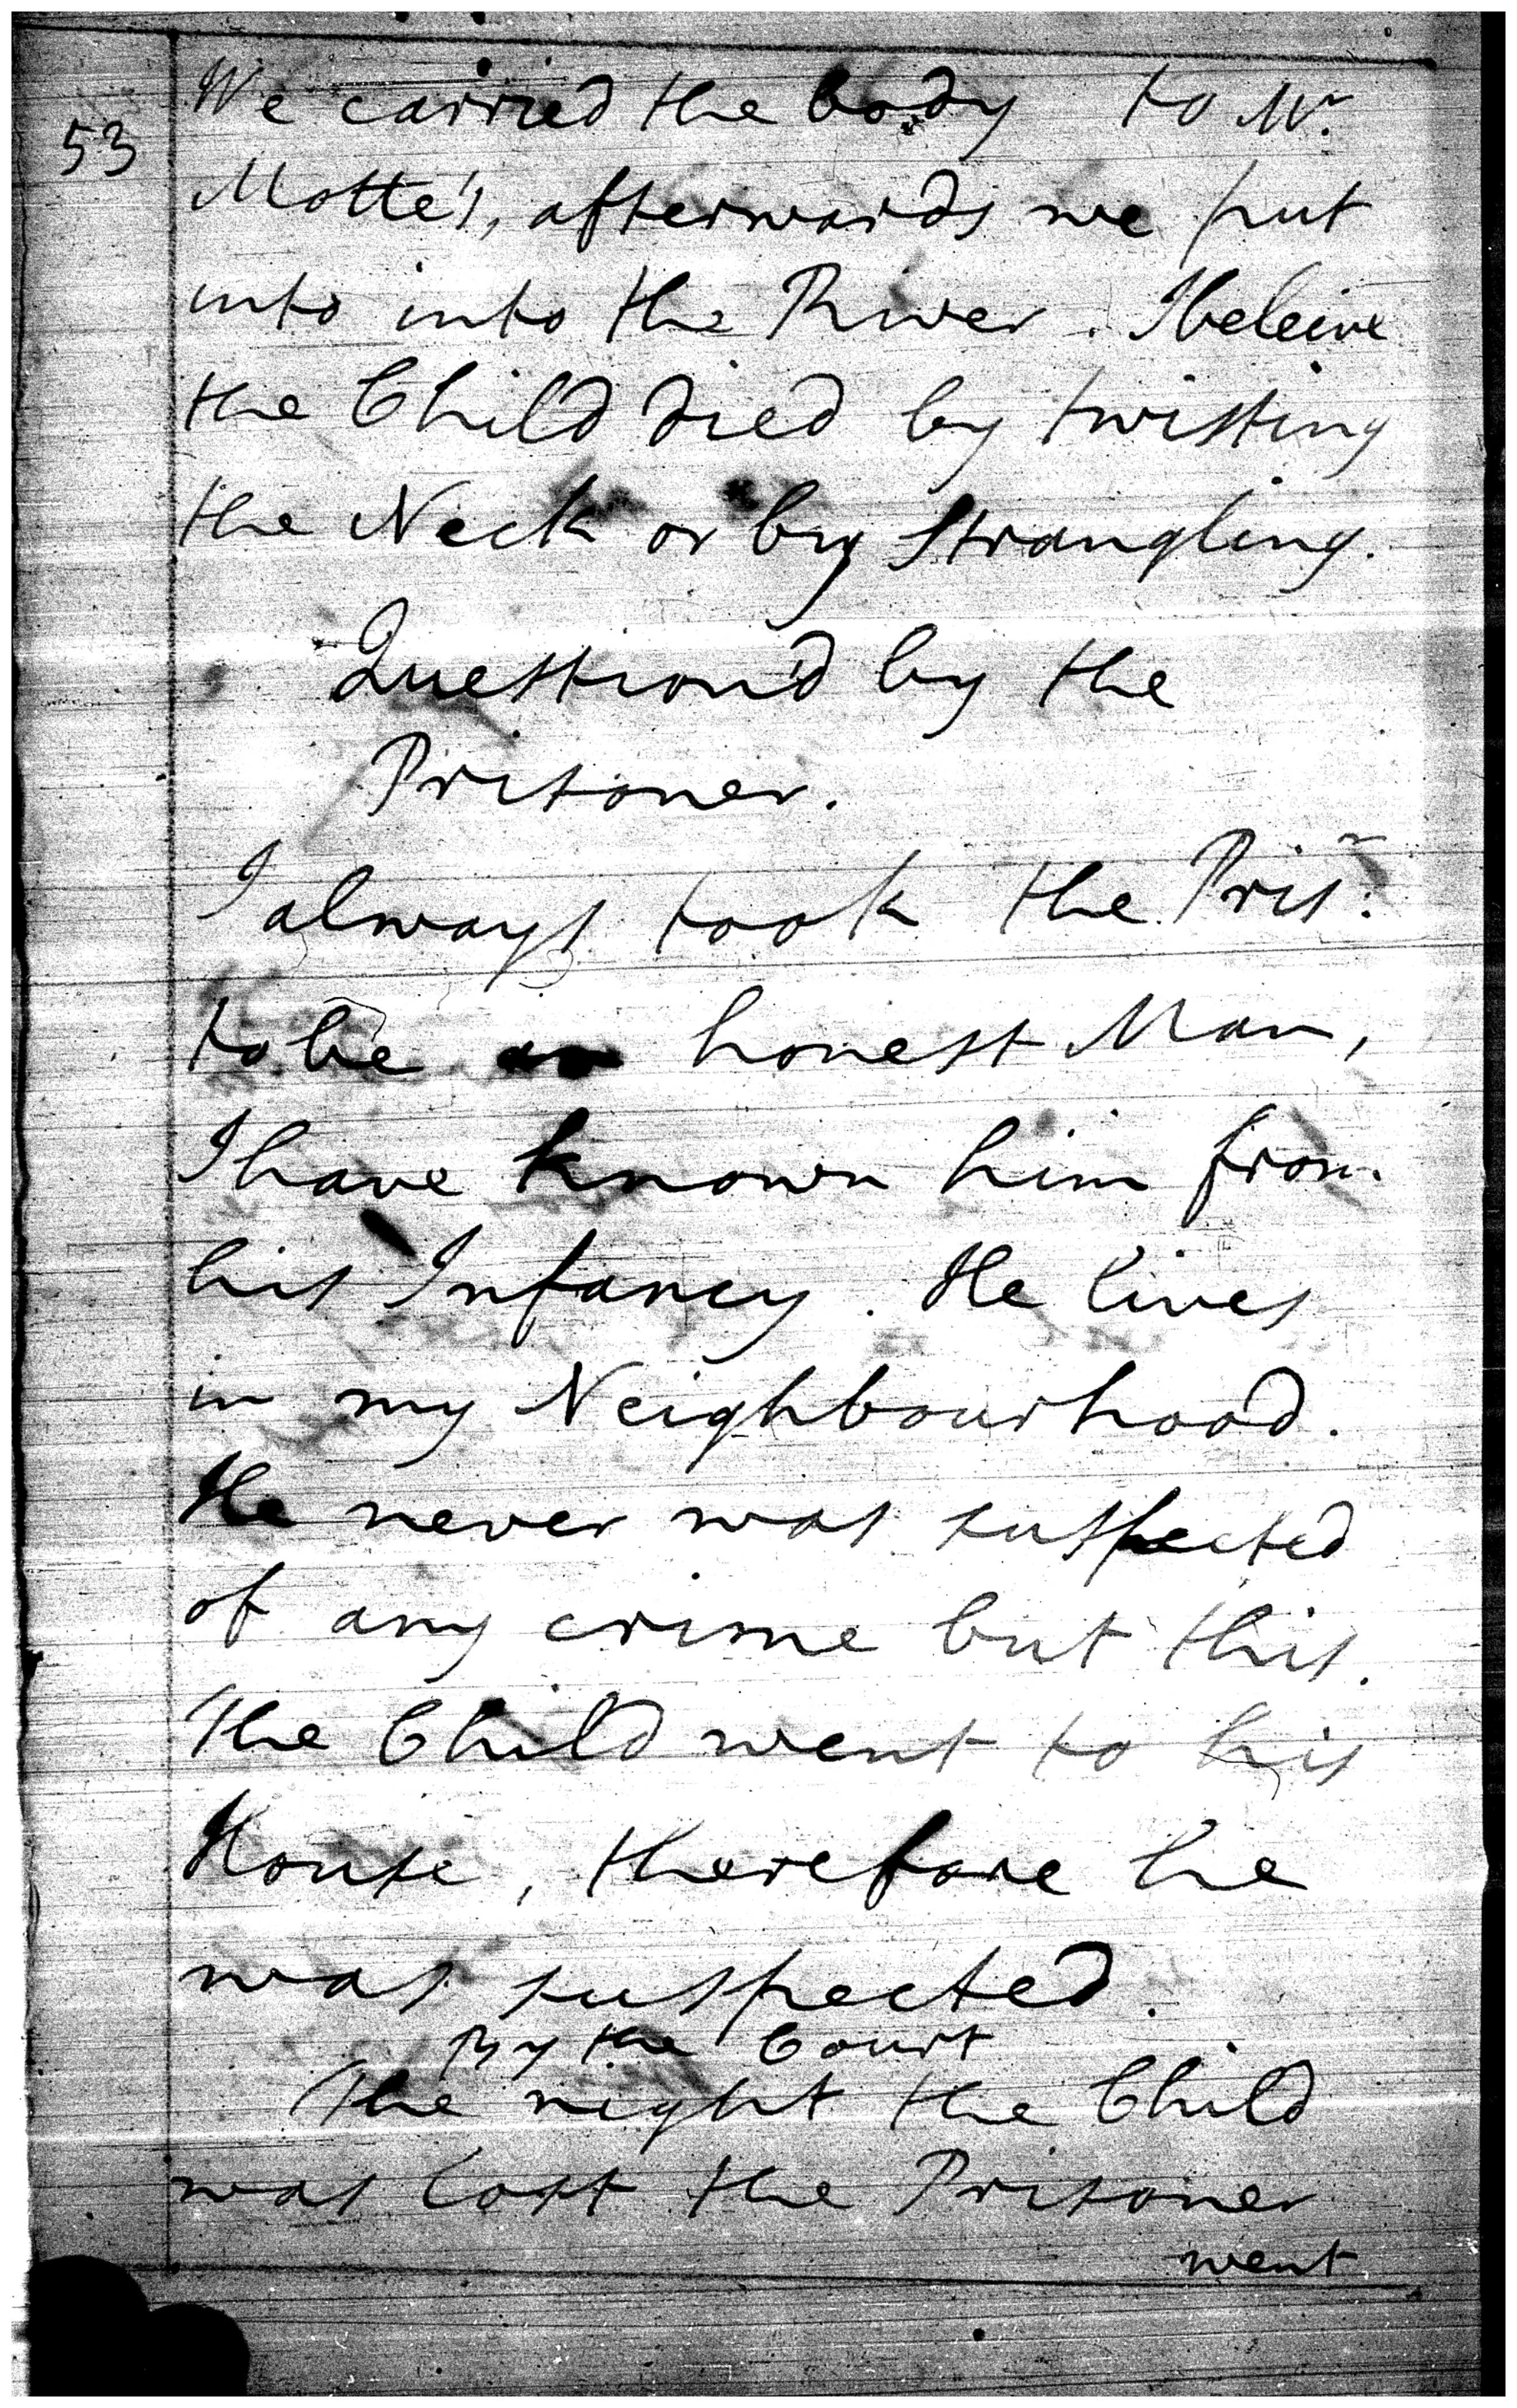 We carried the body to Mr.
53
Motte's, afterwards we put
into into the River. I beleive
the Child died by twisting
the Neck or by Strangling.
Question'd by the
Prisoner.
I always took the Prisr.
to be an honest Man,
I have known him from
his Infancy. He lives
in my Neighbourhood.
He never was suspected
of any crime but this.
The Child went to his
House, therefore he
was suspected.
By the Court
The night the Child
was lost the Prisoner
went